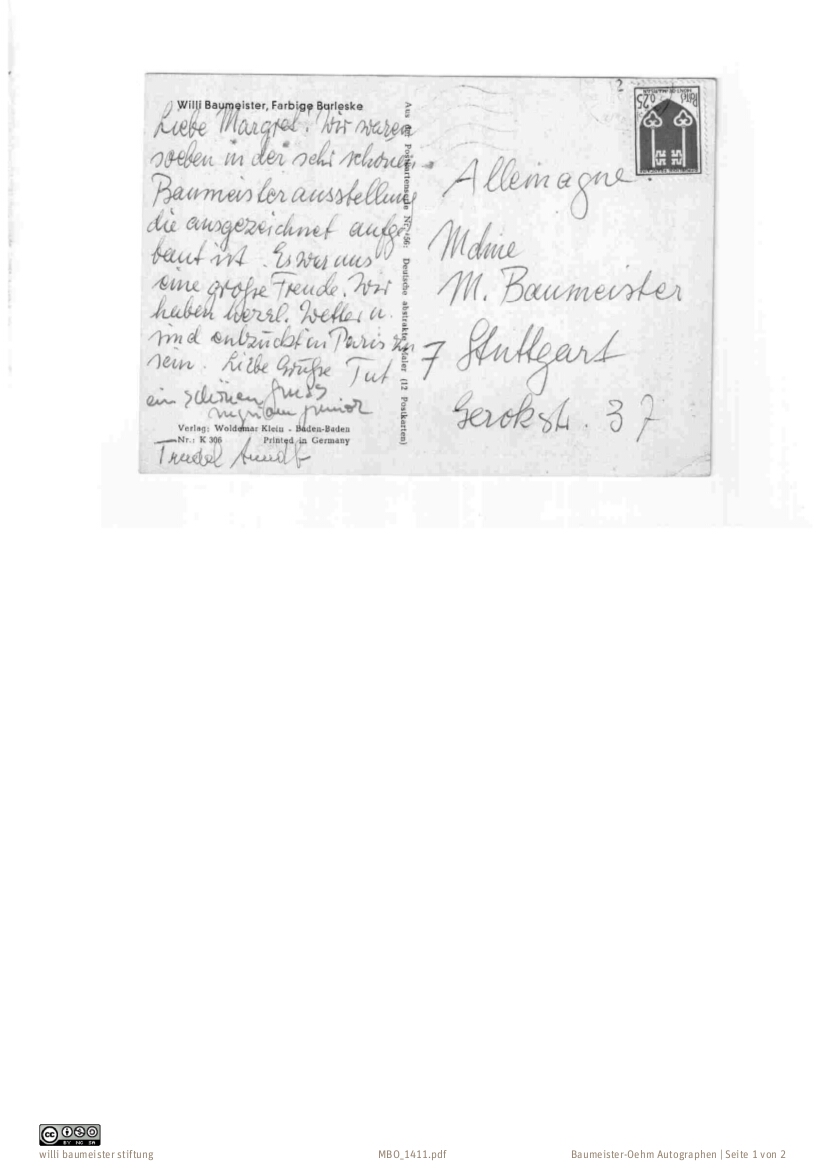 Willi Baumeister, Farbige Burleske
Liebe Margret! Wir waren
soeben in der sehr schönen
Baumeisterausstellung
die ausgezeichnet aufge
baut ist. Es war uns
eine große Freude. Wir
haben herrl. Wetter u.
sind entzückt in Paris zu
sein. Liebe Grüße Tut
ein schönen Gruss
junior
Verlag: Woldemar Klein - Baden-Baden
Nr.: K 306 Printed in Germany
Trudel Arndt
Aus der Postkartenserie Deutsche abstrakte Maler (12 Postkarten)
2
0,25
Allemagne.
Mdme
M. Baumeister
7 Stuttgart
Gerokstr. 37
cc BY NC SA
willi baumeister stiftung
MBO_1411.pdf
Baumeister-Oehm Autographen | Seite 1 von 2